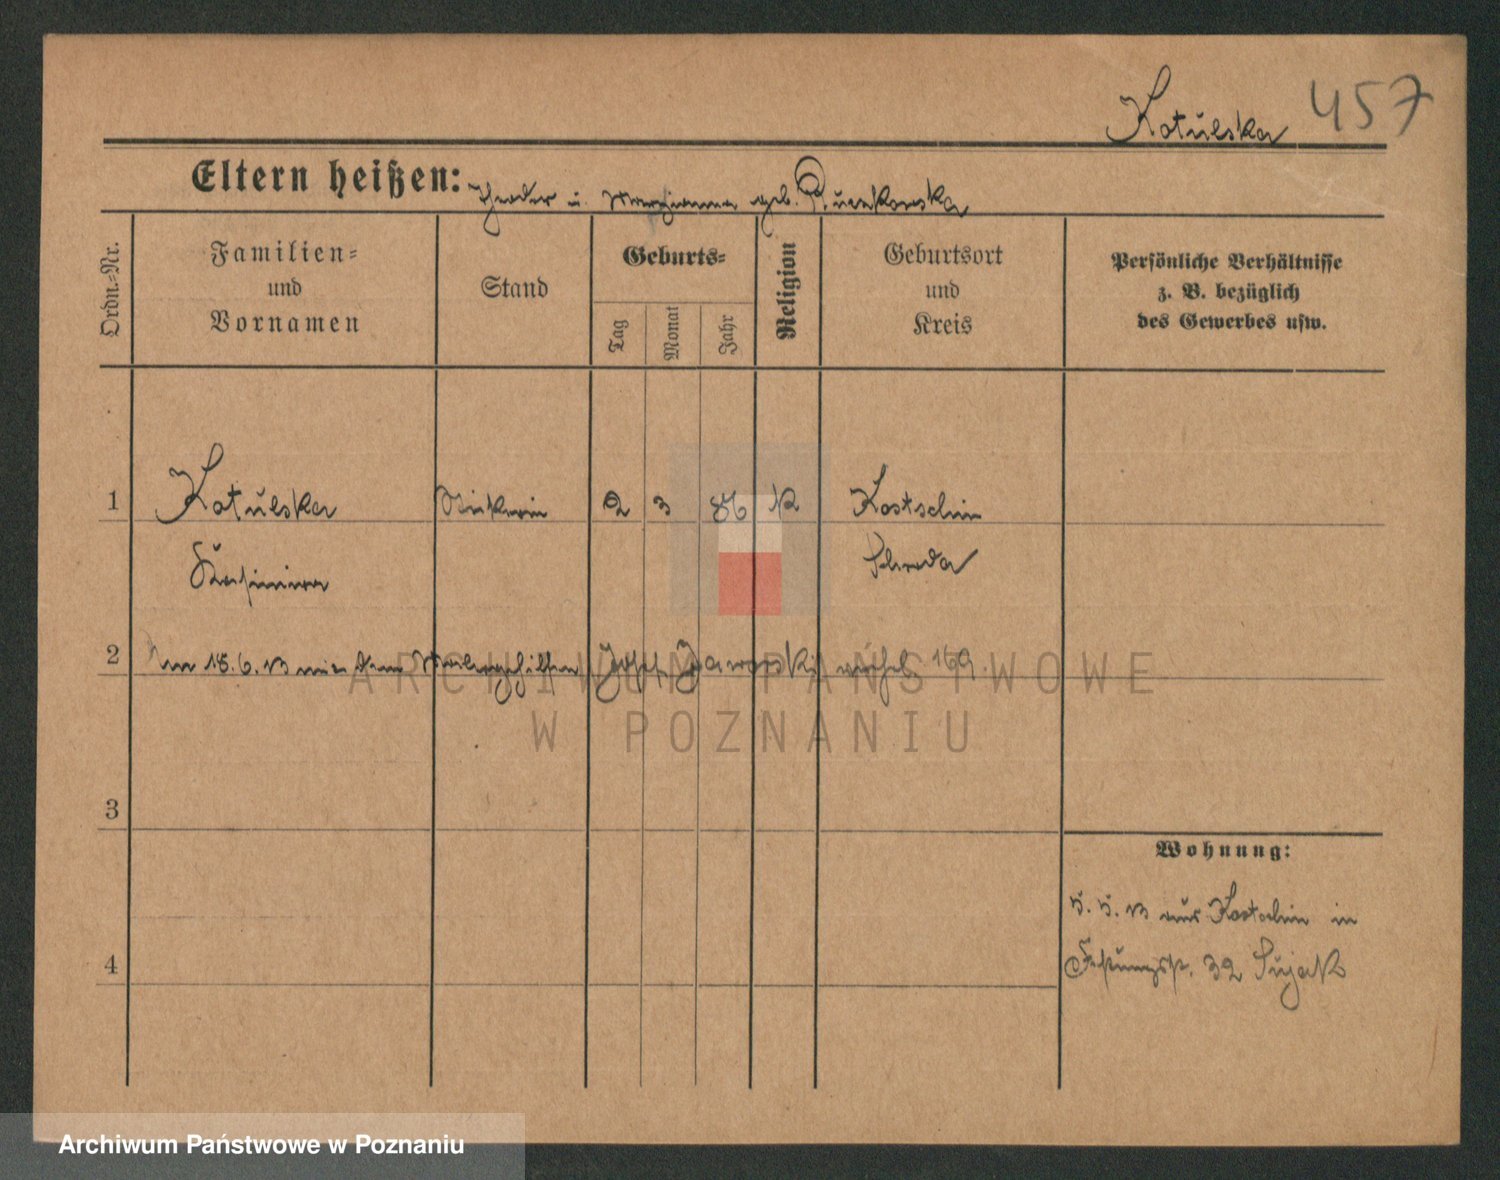 Kotulska 457
Eltern heißen: Theodor u. Marianna geb.
Ordn.-Nr.
Familien-
und
Vornamen
Stand
Geburts-
Tag
Monat
Jahr
Religion
Geburtsort
und
Kreis
Persönliche Verhältnisse
z. B. bezüglich
des Gewerbes usw.
1 Kotulska 2 3 86 K Kostschin
Kasimira Schroda
2 Am 18.6.13 mit dem Josef Jaworski verehel. 169
3
4
Wohnung:
5. 5. 13 aus Kostschin in
Festungsstr. 32 Sujak
ARCHIWUM PAŃSTWOWE
W POZNANIU
Archiwum Państwowe w Poznaniu